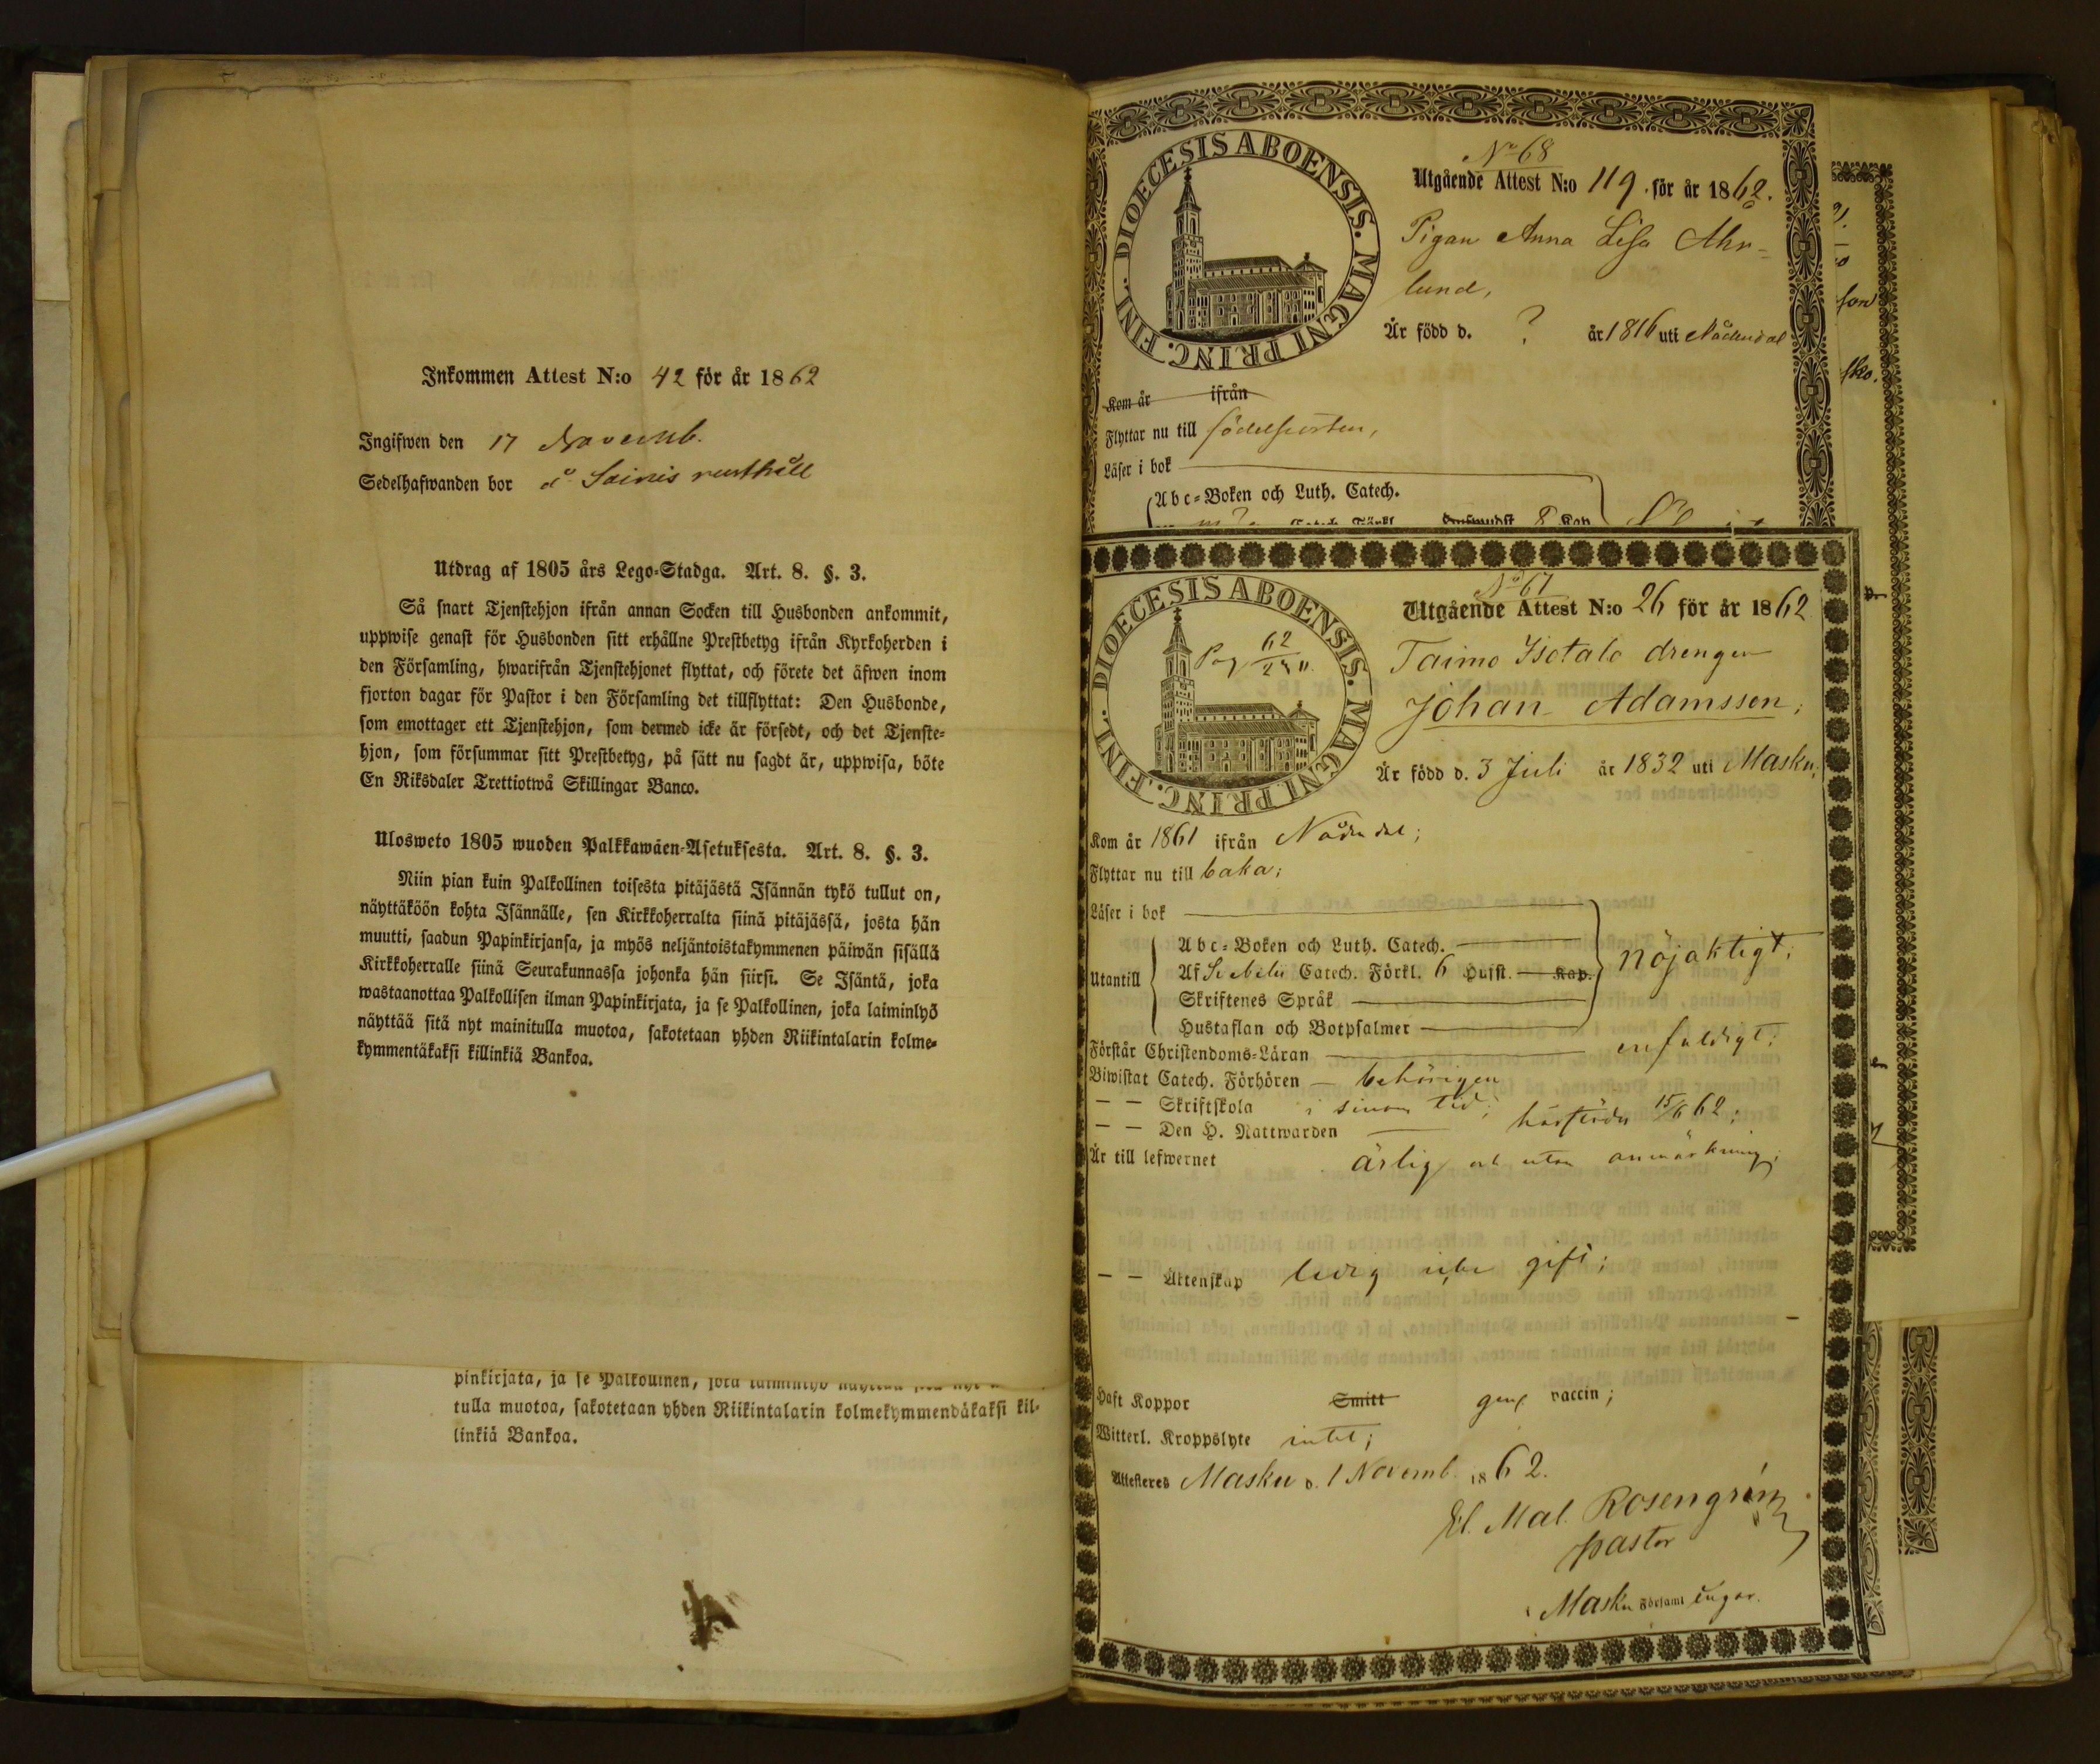 Inkommen Attest N:o 42 för år 1862
Ingifwen den 17 Novemb.
Sedelhafwanden bor å Soinis rusthåll
Utdrag af 1805 års Lego-Stadga. Art. 8. §. 3.
Så snart Tjenstehjon ifrån annan Socken till Husbonden ankommit,
uppwise genast för Husbonden sitt erhållne Prestbetyg ifrån Kyrkoherden i
den Församling, hwarifrån Tjenstehjonet flyttat, och förete det äfwen inom
fjorton dagar för Pastor i den Församling det tillflyttat: Den Husbonde,
som emottager ett Tjenstehjon, som dermed icke är försedt, och det Tjenste-
hjon, som försummar sitt Prestbetyg, på sätt nu sagdt är, uppwisa, böte
En Riksdaler Trettiotwå Skillingar Banco.
Ulosweto 1805 wuoden Palkkawäen-Asetuksesta. Art. 8. §. 3.
Niin pian kuin Palkollinen toisesta pitäjästä Isännän tykö tullut on,
näyttäköön kohta Isännälle, sen Kirkkoherralta siinä pitäjässä, josta hän
muutti, saadun Papinkirjansa, ja myös neljäntoistakymmenen päiwän sisällä
Kirkkoherralle siinä Seurakunnassa johonka hän siirsi. Se Isäntä, joka
wastaanottaa Palkollisen ilman Papinkirjata, ja se Palkollinen, joka laiminlyö
näyttää sitä nyt mainitulla muotoa, sakotetaan yhden Riikintalarin kolme-
kymmentäkaksi killinkiä Bankoa.
pinkirjata, ja se Palkollinen, joka laiminlyö näyttää
tulla muotoa, sakotetaan yhden Riikintalarin kolmekymmendäkaksi kil-
linkiä Bankoa.
DIOECESIS ABOENSIS. MAGNI PRINC. FINL.
No 68
Utgående Attest N:o 119. för år 1862.
Pigan Anna Lisa Ahr-
lund,
Är född d. ? år 1816 uti Nådendal
Kom år ifrån
Flyttar nu till födelseorten,
Läser i bok
Abc-Boken och Luth. Catech.
DIOECESIS ABOENSIS. MAGNI PRINC. FINL.
No 67
Utgående Attest N:o 26 för år 1862
Pag 62
Taimo Isotalo drengen
Johan Adamsson;
Är född d. 3 Juli år 1832 uti Masku;
Kom år 1861 ifrån Nådendal;
Flyttar nu till baka;
Läser i bok
Abc-Boken och Luth. Catech.
Utantill Af Sebelii Catech. Förkl. 6 Hufst. Kap. nöjaktigt;
Skriftenes Språk
Hustaflan och Botpsalmer
Förstår Christendoms-Läran enfaldigt;
Biwistat Catech. Förhören behörigen
— — Skriftskola i sinom tid;
— — Den H. Nattwarden härstädes 15/6 62;
Är till lefwernet ärlig och utan anmärkning;
— — Äktenskap ledig icke gift;
Haft Koppor Smitt gen vaccin;
Witterl. Kroppslyte intet;
Attesteres Masku d. 1 Novemb. 1862.
El. Mal. Rosengrén
pastor
Masku Församl ingar.